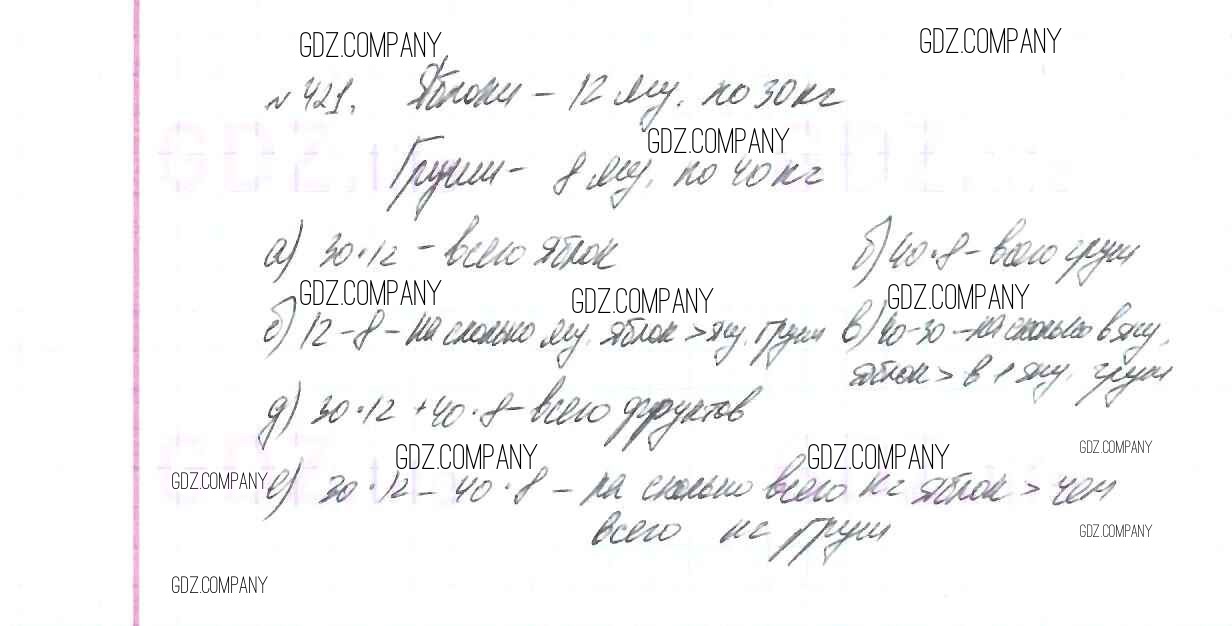 GDZ.COMPANY
GDZ.COMPANY
№421. Яблоки – 12 ящ. по 30 кг
GDZ.COMPANY
Груши – 8 ящ. по 40 кг
а) 30·12 – всего яблок б) 40·8 – всего груш
GDZ.COMPANY GDZ.COMPANY GDZ.COMPANY
с) 12–8 – на сколько ящ. яблок > ящ. груш в) 40–30 – на сколько в ящ.
яблок > в 1 ящ. груш
д) 30·12 + 40·8 – всего фруктов
GDZ.COMPANY GDZ.COMPANY GDZ.COMPANY
GDZ.COMPANY
е) 30·12 – 40·8 – на сколько всего кг яблок > чем
всего кг груш
GDZ.COMPANY
GDZ.COMPANY